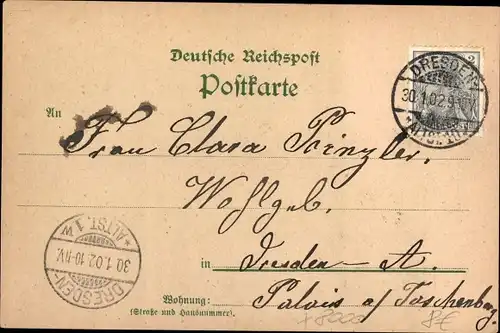 Deutsche Reichspost
Postkarte
DRESDEN
30.1.02.9
An
Frau Clara Prinzler,
Wohlgeb.
in Dresden-A.
ALTST. 1
30.1.02.10-11V.
DRESDEN
Wohnung: Palais a/Taschenberg
(Straße und Hausnummer)